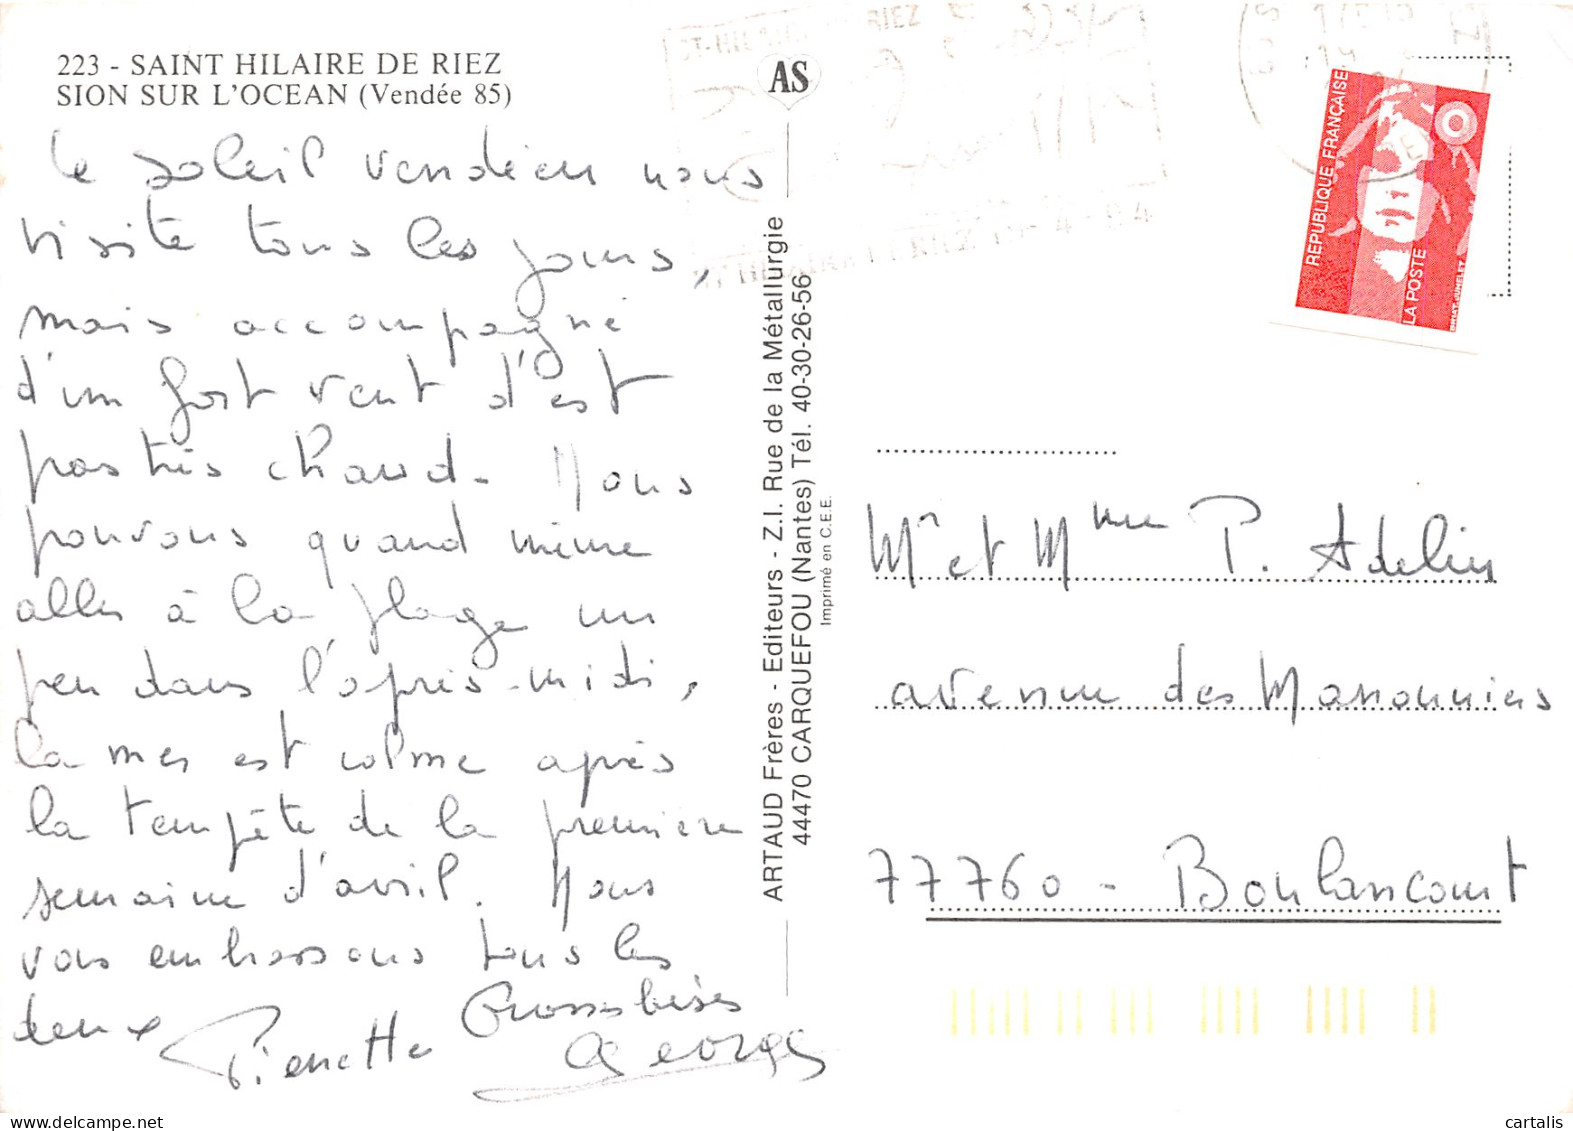 223 - SAINT HILAIRE DE RIEZ
SION SUR L'OCEAN (Vendée 85)
le soleil vendéen nous
visite tous les jours,
mais accompagné
d'un fort vent d'est
pas très chaud. Nous
pouvons quand même
aller à la plage un
peu dans l'après-midi,
la mer est calme après
la tempête de la première
semaine d'avril. Nous
vous embrassons tous les
deux
Grosses bises
Pierrette
Georges
AS
ARTAUD Frères - Editeurs - Z.I. Rue de la Métallurgie
44470 CARQUEFOU (Nantes) Tél. 40-30-26-56
Imprimé en C.E.E.
ST-HILAIRE DE RIEZ
ST HILAIRE DE RIEZ
4-94
REPUBLIQUE FRANÇAISE
LA POSTE
Mr et Mme P. Adelin
avenue des Marronniers
77760 - Boulancourt
cartalis